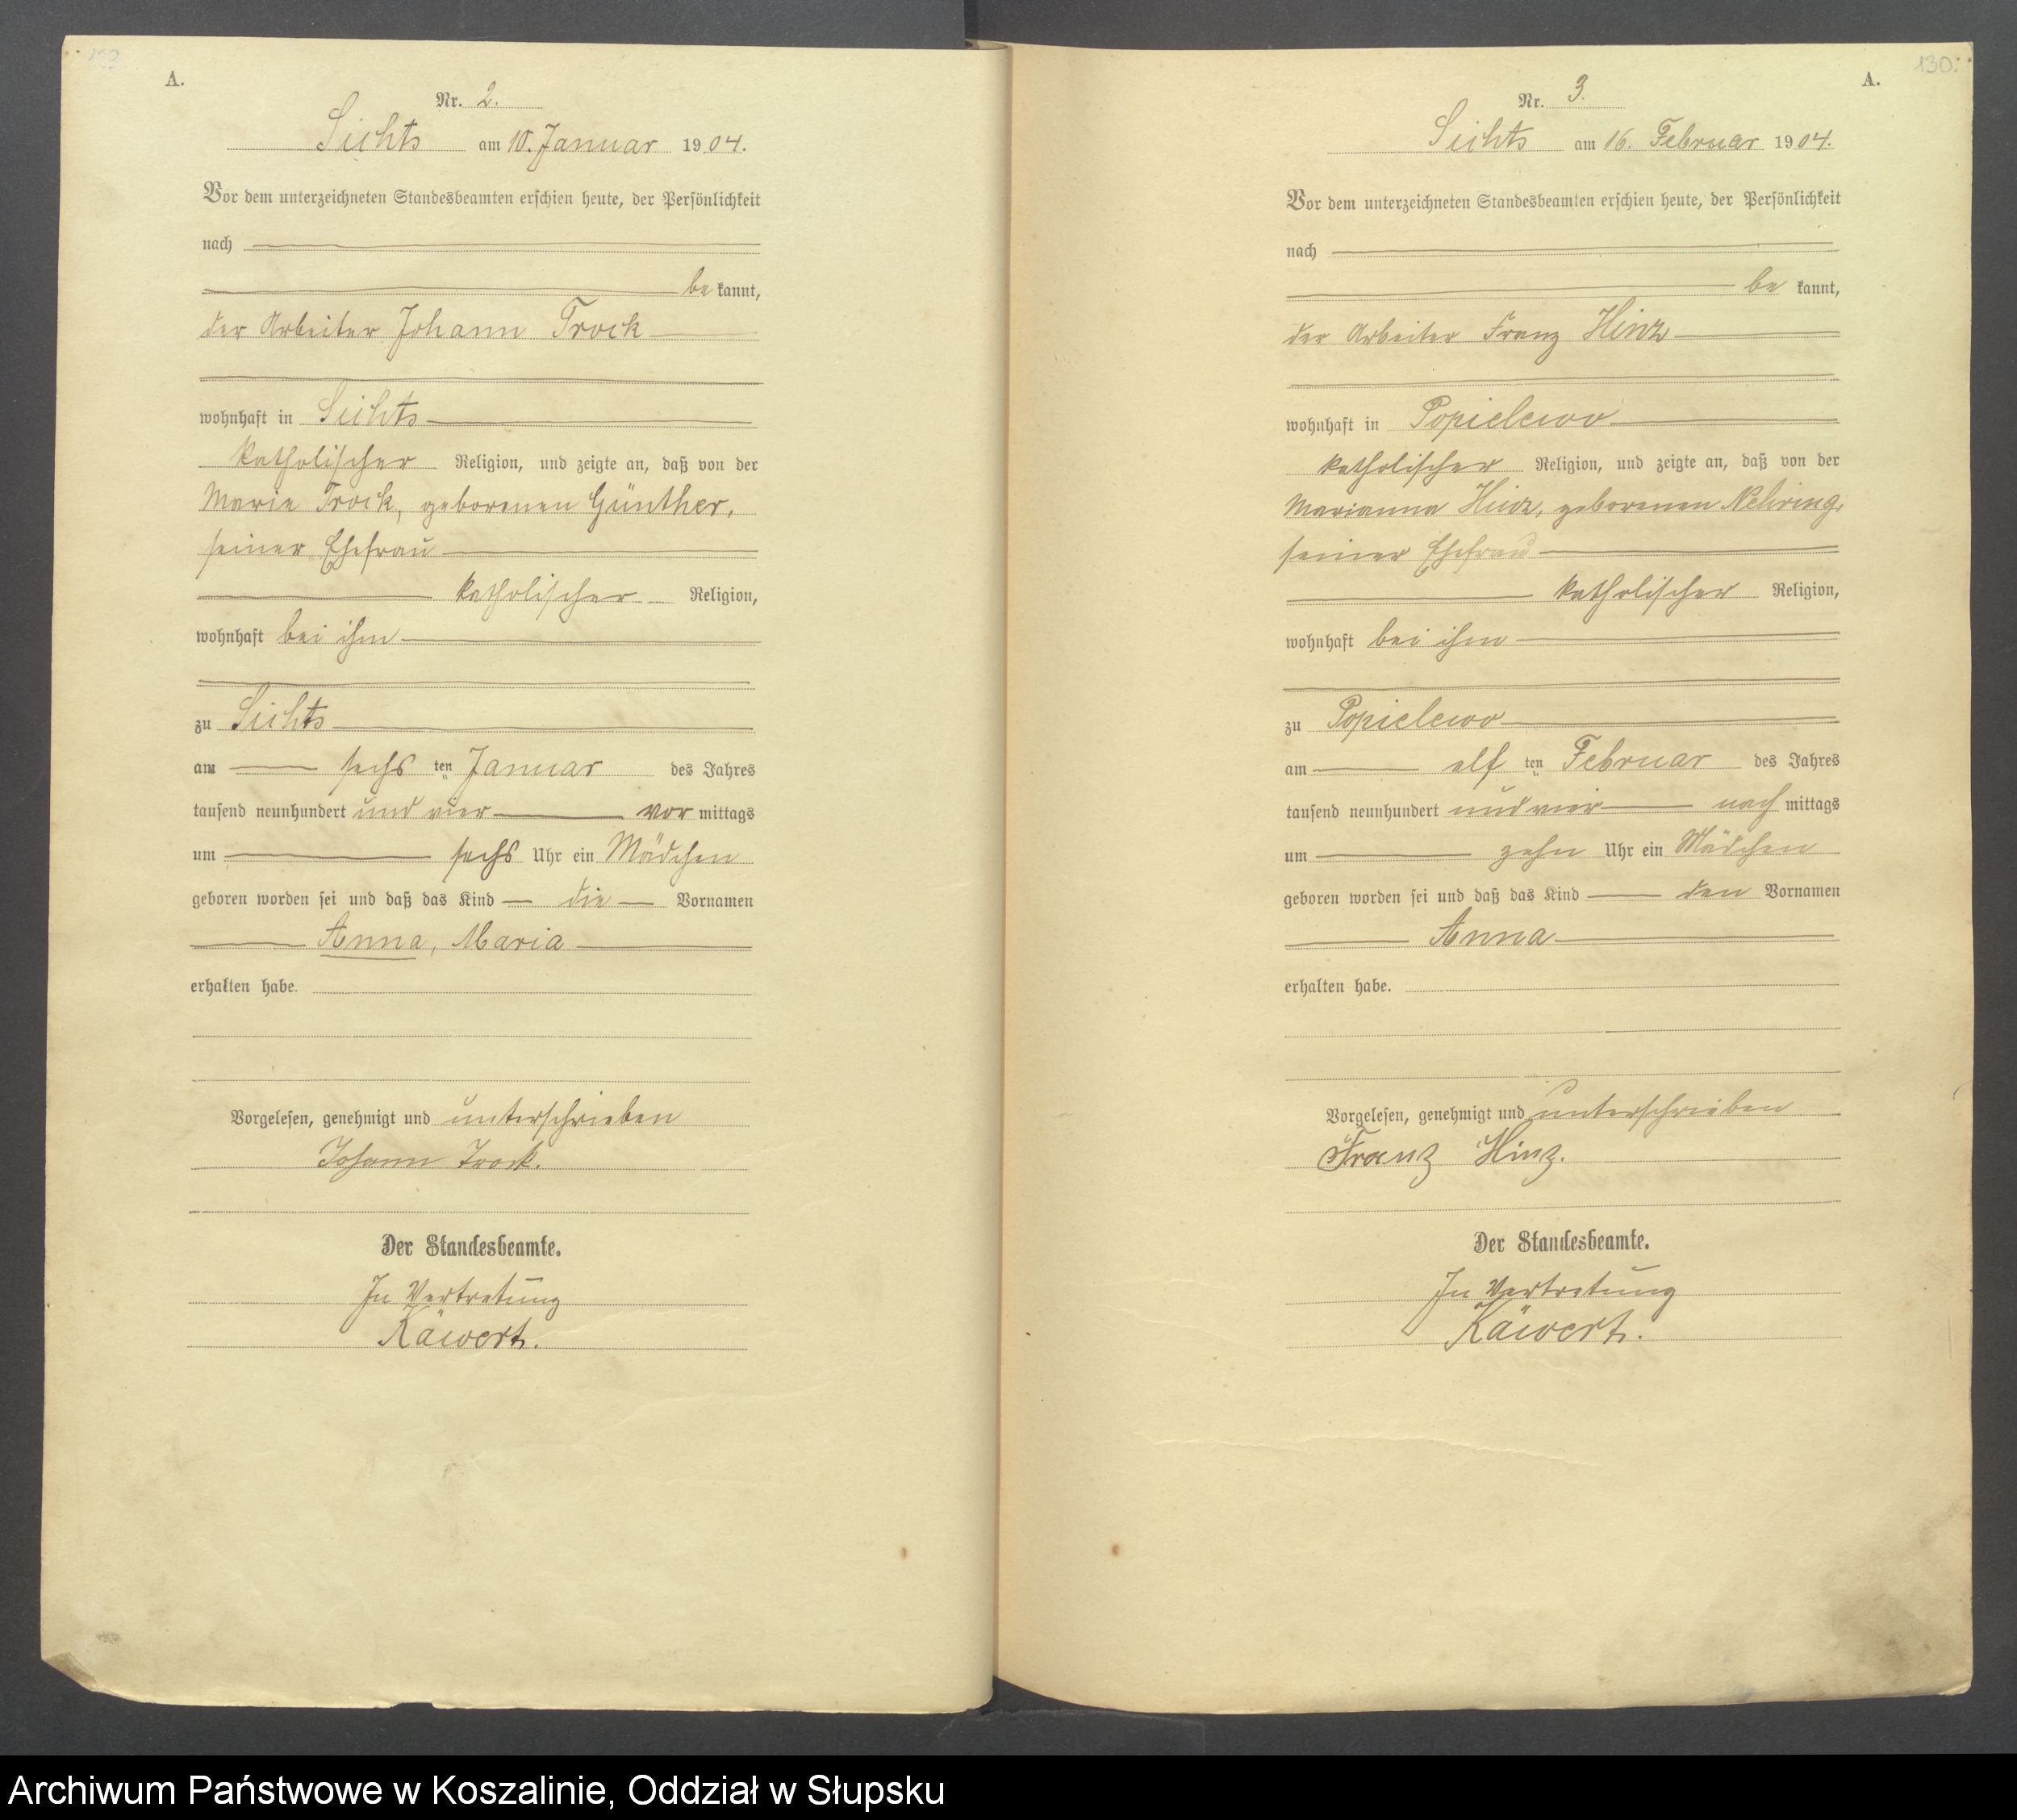 A.
Nr. 2.
Sichts am 10. Januar 1904.
Vor dem unterzeichneten Standesbeamten erschien heute, der Persönlichkeit
nach
be kannt,
der Arbeiter Johann Trock
wohnhaft in Sichts
katholischer Religion, und zeigte an, daß von der
Maria Trock, geborenen Günther,
seiner Ehefrau
katholischer Religion,
wohnhaft bei ihm
zu Sichts
am sechs ten Januar des Jahres
tausend neunhundert und vier vor mittags
um sechs Uhr ein Mädchen
geboren worden sei und daß das Kind die Vornamen
Anna, Maria
erhalten habe.
Vorgelesen, genehmigt und unterschrieben
Johann Trock.
Der Standesbeamte.
In Vertretung
Käwert.
130.
A.
Nr. 3.
Sichts am 16. Februar 1904.
Vor dem unterzeichneten Standesbeamten erschien heute, der Persönlichkeit
nach
be kannt,
der Arbeiter Franz Hinz
wohnhaft in Popielewo
katholischer Religion, und zeigte an, daß von der
Marianna Hinz, geborenen Nehring,
seiner Ehefrau
katholischer Religion,
wohnhaft bei ihm
zu Popielewo
am elf ten Februar des Jahres
tausend neunhundert und vier nach mittags
um zehn Uhr ein Mädchen
geboren worden sei und daß das Kind den Vornamen
Anna
erhalten habe.
Vorgelesen, genehmigt und unterschrieben
Franz Hinz.
Der Standesbeamte.
In Vertretung
Käwert.
Archiwum Państwowe w Koszalinie, Oddział w Słupsku